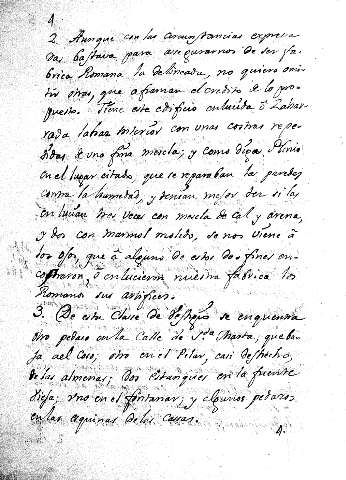 4
2. Aunque con las circunstancias expresa
das bastava para asegurarnos de ser fa
brica Romana la delineada, no quiero omi
tir otras, que afianzan el credito de lo pro
puesto. Tiene este edificio enlucida ò Zabor
rada la haz interior con unas costras repe
tidas de una fina mezcla; y como diga Plinio
en el lugar citado, que se reparaban las paredes
contra la humedad, y tenian mejor ser si las
enlucian tres veces con mezcla de cal y arena,
y dos con marmol molido, se nos viene à
los ojos, que à alguno de estos dos fines en
caminaron, ò enlucieron nuestra fabrica los
Romanos sus artifices.
3. De esta clase de se encuentra
otro pedazo en la Calle de S.ta Marta, que ba
ja al Coso, otro en el Pilar, casi deshecho,
de las almenas; Dos estanques en la fuente
vieja; uno en el fontanar; y algunos pedazos
en las esquinas de las casas.
4.